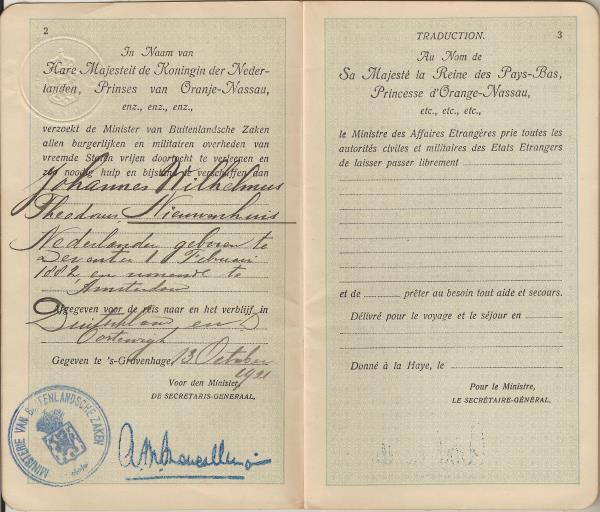 2
In Naam van
Hare Majesteit de Koningin der Neder-
landen, Prinses van Oranje-Nassau,
enz., enz., enz.,
verzoekt de Minister van Buitenlandsche Zaken
allen burgerlijken en militairen overheden van
vreemde Staten vrijen doortocht te verleenen en
zoo noodig hulp en bijstand te verschaffen aan
Johannes Wilhelmus
Theodorus Nieuwenhuis
Nederlander geboren te
Deventer 1 Februari
1882 en wonende te
Amsterdam
Afgegeven voor de reis naar en het verblijf in
Duitschland en
Oostenrijk
Gegeven te 's-Gravenhage, 13 October
1921
Voor den Minister,
DE SECRETARIS-GENERAAL,
MINISTERIE VAN BUITENLANDSCHE ZAKEN
TRADUCTION.
3
Au Nom de
Sa Majesté la Reine des Pays-Bas,
Princesse d'Orange-Nassau,
etc., etc., etc.,
le Ministre des Affaires Etrangères prie toutes les
autorités civiles et militaires des Etats Etrangers
de laisser passer librement
et de prêter au besoin tout aide et secours.
Délivré pour le voyage et le séjour en
Donné à la Haye, le
Pour le Ministre,
LE SECRÉTAIRE-GÉNÉRAL,